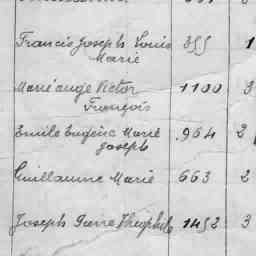 Francis Joseph Louis 355 1
Marie
Marie ange Victor 1100 3
François
Emile Eugène Marie 964 2
Joseph
Guillaume Marie 663 2
Joseph Pierre Théophile 1452 3